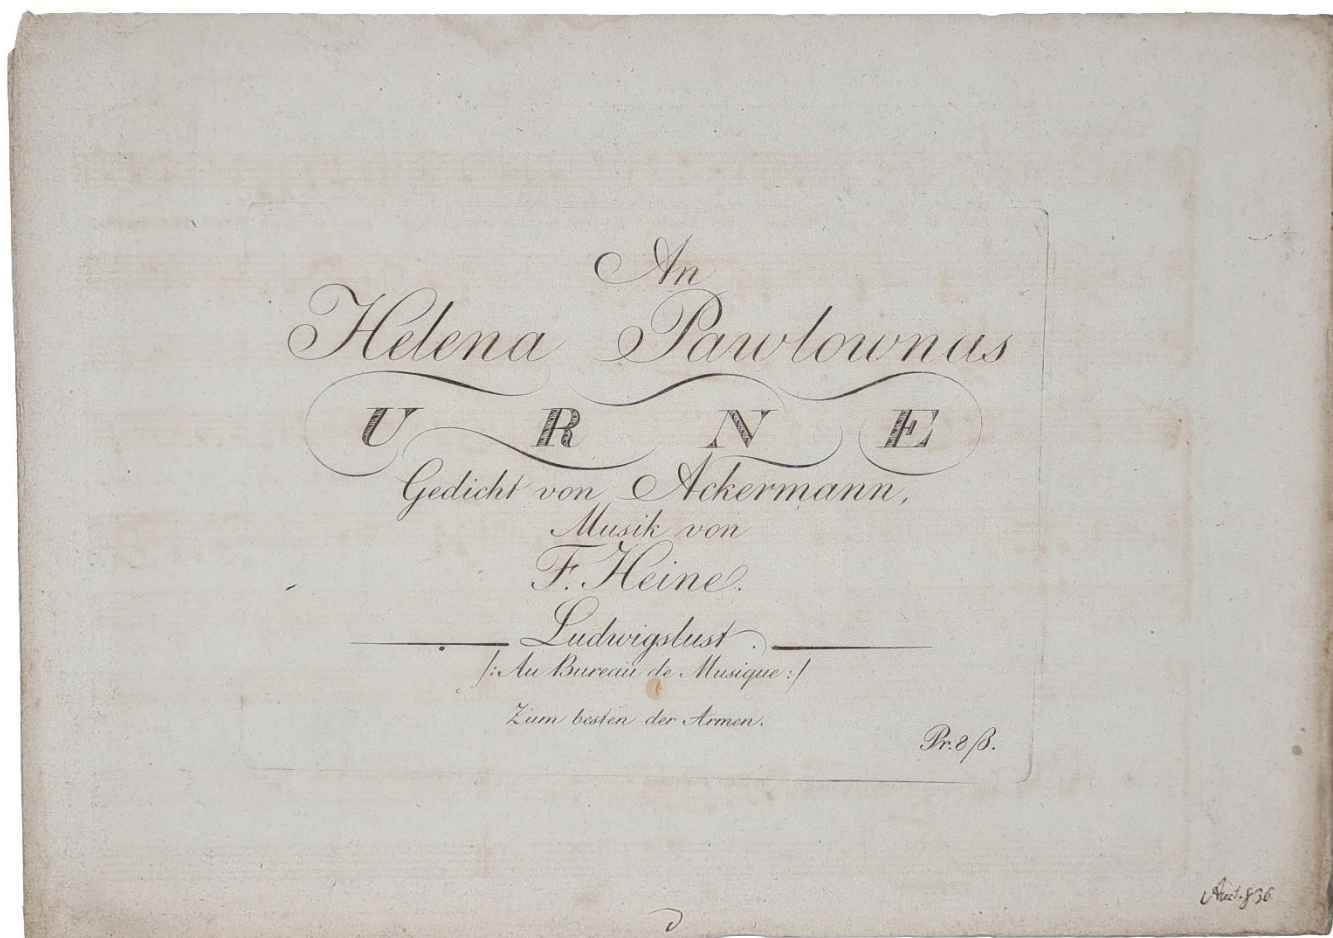 An
Helena Pawlownas
URNE
Gedicht von Ackermann,
Musik von
F. Heine.
Ludwigslust.
/:Au Bureau de Musique:/
Zum besten der Armen.
Pr. 8 ß.